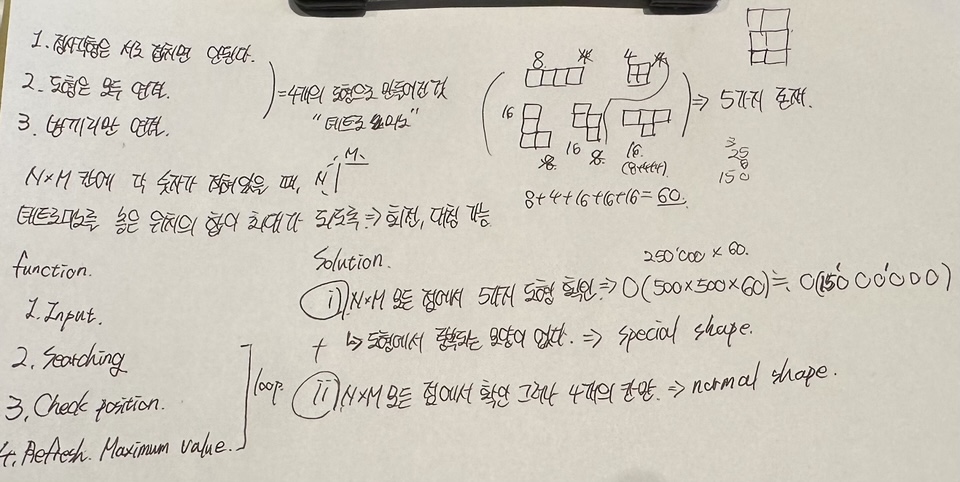 1. 정사각형은 서로 겹치면 안된다.
2. 도형은 모두 연결.
3. 변끼리만 연결.
= 4개의 도형으로 만들어진 것
"테트로미노"
8 4
16 16 16
(8+4+4)
8+4+16+16+16 = 60.
⇒ 5가지 존재.
25
6
150
N×M 칸에 각 숫자가 적혀있을 때, N M
테트로미노를 놓은 위치의 합이 최대가 되도록 ⇒ 회전, 대칭 가능
function.
1. Input.
2. Searching
3. Check position.
4. Refresh. Maximum value.
loop.
Solution.
250'000 × 60.
i) N×M 모든 점에서 5가지 도형 확인 ⇒ O(500×500×60) ≒ O(15'000'000)
+ ↳ 도형에서 중복되는 모양이 없다. ⇒ special shape.
ii) N×M 모든 점에서 확인 그러나 4개의 칸만. ⇒ normal shape.